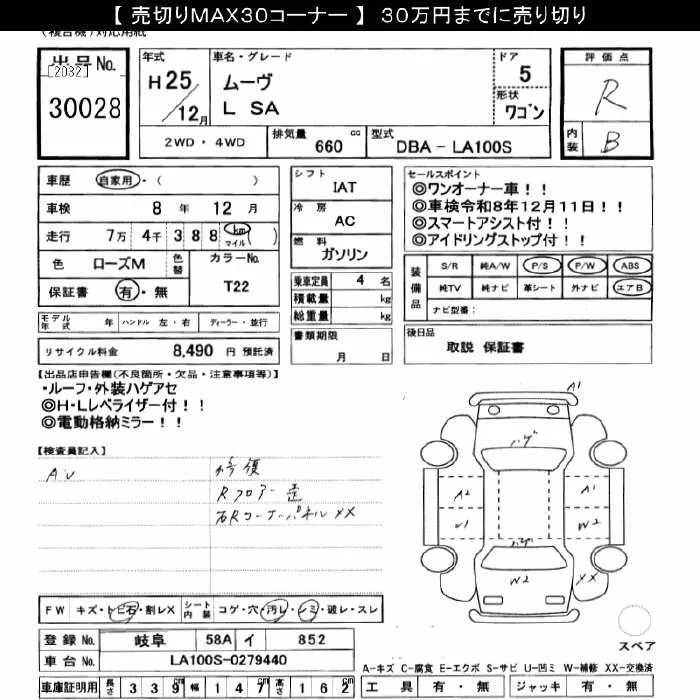 【売切りMAX30コーナー】 30万円までに売り切り
(複合機)対応用紙
出品No. [2032] 30028
年式 H25/12月
車名・グレード ムーヴ L SA
ドア 5
形状 ワゴン
評価点 R
内装 B
2WD・4WD 排気量 660 cc 型式 DBA-LA100S
車歴 自家用・( )
車検 8年 12月
走行 7万 4千 388 km マイル ( )
色 ローズM 色替 カラーNo. T22
保証書 有・無
シフト IAT
冷房 AC
燃料 ガソリン
乗車定員 4 名
積載量 kg
総重量 kg
セールスポイント
◎ワンオーナー車!!
◎車検令和8年12月11日!!
◎スマートアシスト付!!
◎アイドリングストップ付!!
装備品 S/R 純A/W P/S P/W ABS
純TV 純ナビ 革シート 外ナビ エアB
ナビ型番:
モデル年式 年 ハンドル 左・右 ディーラー・並行
リサイクル料金 8,490 円 預託済
書類期限 月 日
後日品 取説 保証書
【出品店申告欄(不良箇所・欠品・注意事項等)】
・ルーフ・外装ハゲアセ
◎H・Lレベライザー付!!
◎電動格納ミラー!!
【検査員記入】
AU 修復
Rフロアー歪
右Rコーナーパネル XX
A1
ハゲ
A2 A1
U1 ハゲ W2
W2 XX
スペア
FW キズ・トビ石・割レX シート内装 コゲ・穴・汚レ・シミ・破レ・スレ
登録No. 岐阜 58A イ 852
車台No. LA100S-0279440
A-キズ C-腐食 E-エクボ S-サビ U-凹ミ W-補修 XX-交換済
車庫証明用 長さ 339cm 幅 147cm 高さ 162cm 工具 有・無 ジャッキ 有・無